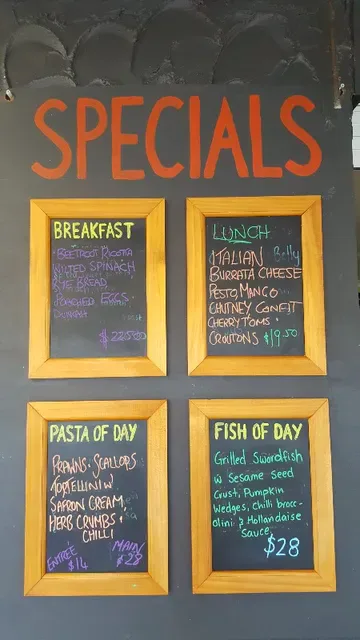 SPECIALS
BREAKFAST
BEETROOT RICOTTA
WILTED SPINACH
RYE BREAD,
POACHED EGGS,
$ 22.50
LUNCH
ITALIAN
BURRATA CHEESE
PESTO, MANGO
CHUTNEY CONFIT
CHERRY TOMS &
CROUTONS $19.50
PASTA OF DAY
PRAWNS & SCALLOPS
TORTELLINI W
SAFRON CREAM,
HERB CRUMBS &
CHILLI
ENTRÉE MAIN
$14 $28
FISH OF DAY
Grilled Swordfish
w Sesame Seed
Crust, Pumpkin
Wedges, chilli brocc-
olini & Hollandaise
Sauce
$28